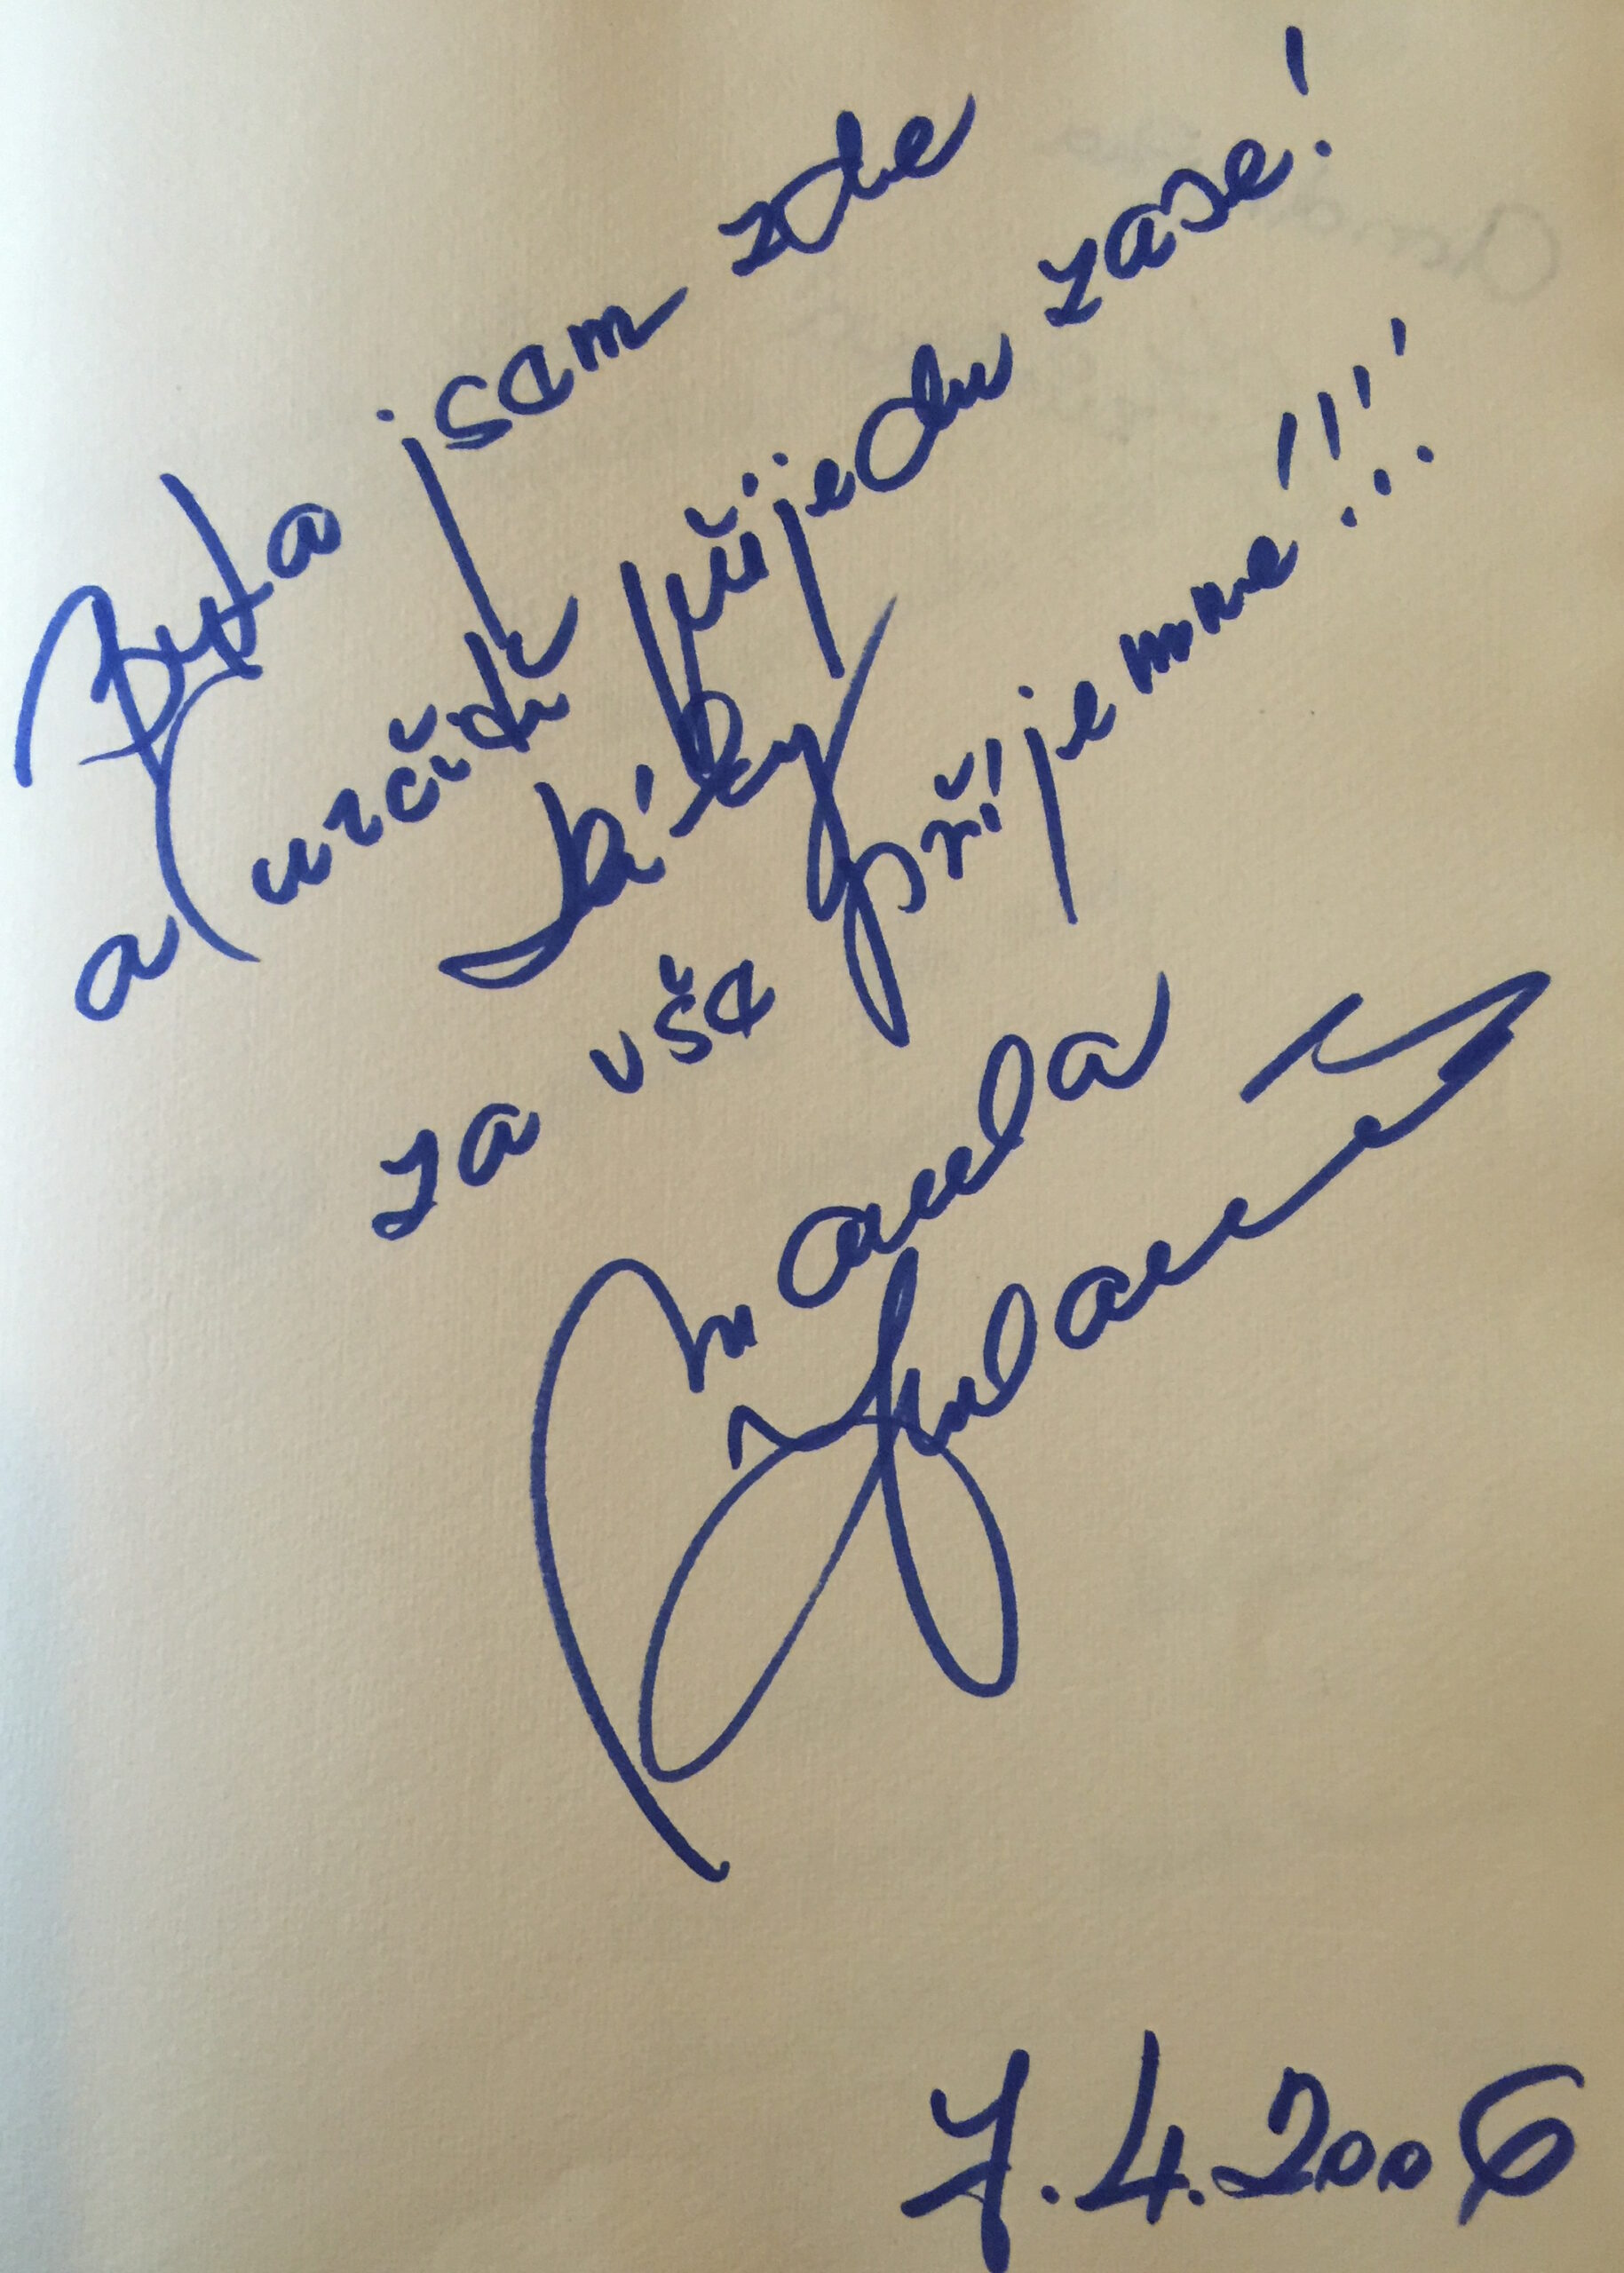 Byla jsem zde
a určitě přijedu zase!
Díky
za vše příjemné!!!
7.4.2006